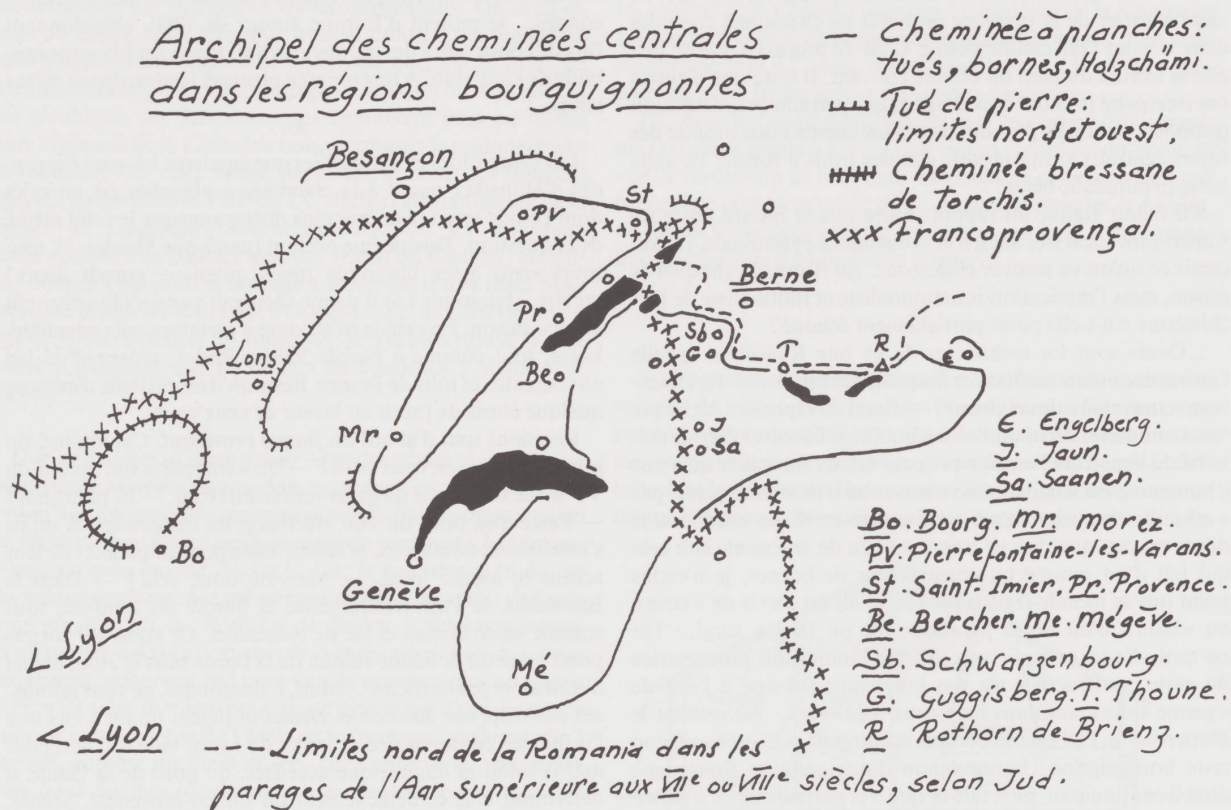 Archipel des cheminées centrales
dans les régions bourguignonnes
— Cheminée à planches:
tués, bornes, Holzchämi.
Tué de pierre:
limites nord et ouest.
Cheminée bressane
de Torchis.
xxx Francoprovençal.
Besançon
PV
St
Berne
Pr
Sb
Go
T
R
E
Lons
Be
Mr
J
Sa
E. Engelberg.
J. Jaun.
Sa. Saanen.
Bo
Genève
Lyon
Mé
< Lyon
Bo. Bourg. Mr. morez.
PV. Pierrefontaine-les-Varans.
St. Saint-Imier. Pr. Provence
Be. Bercher. Me. megève.
Sb. Schwarzenbourg.
G. Guggisberg. T. Thoune.
R. Rothorn de Brienz.
---- Limites nord de la Romania dans les
parages de l'Aar supérieure aux VIIe ou VIIIe siècles, selon Jud.